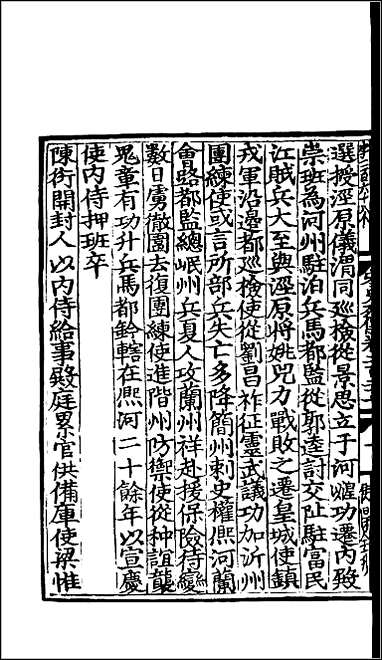 選授涇原儀渭同巡檢從景思立于河湟功遷內殿
崇班為河州駐泊兵馬都監從郭逵討交阯駐富民
江賊兵大至與涇原將姚兕力戰敗之遷皇城使鎮
戎軍沿邊都巡檢使從劉昌祚征靈武議功加沂州
團練使或言所部兵失亡多降簡州刺史權熙河蘭
會路都監總岷州兵夏人攻蘭州祥赴援保險待變
數日虜徹圍去復團練使進階州防禦使從种誼襲
鬼章有功升兵馬都鈐轄在熙河二十餘年以宣慶
使內侍押班卒
陳衍開封人以內侍給事殿庭累官供備庫使梁惟